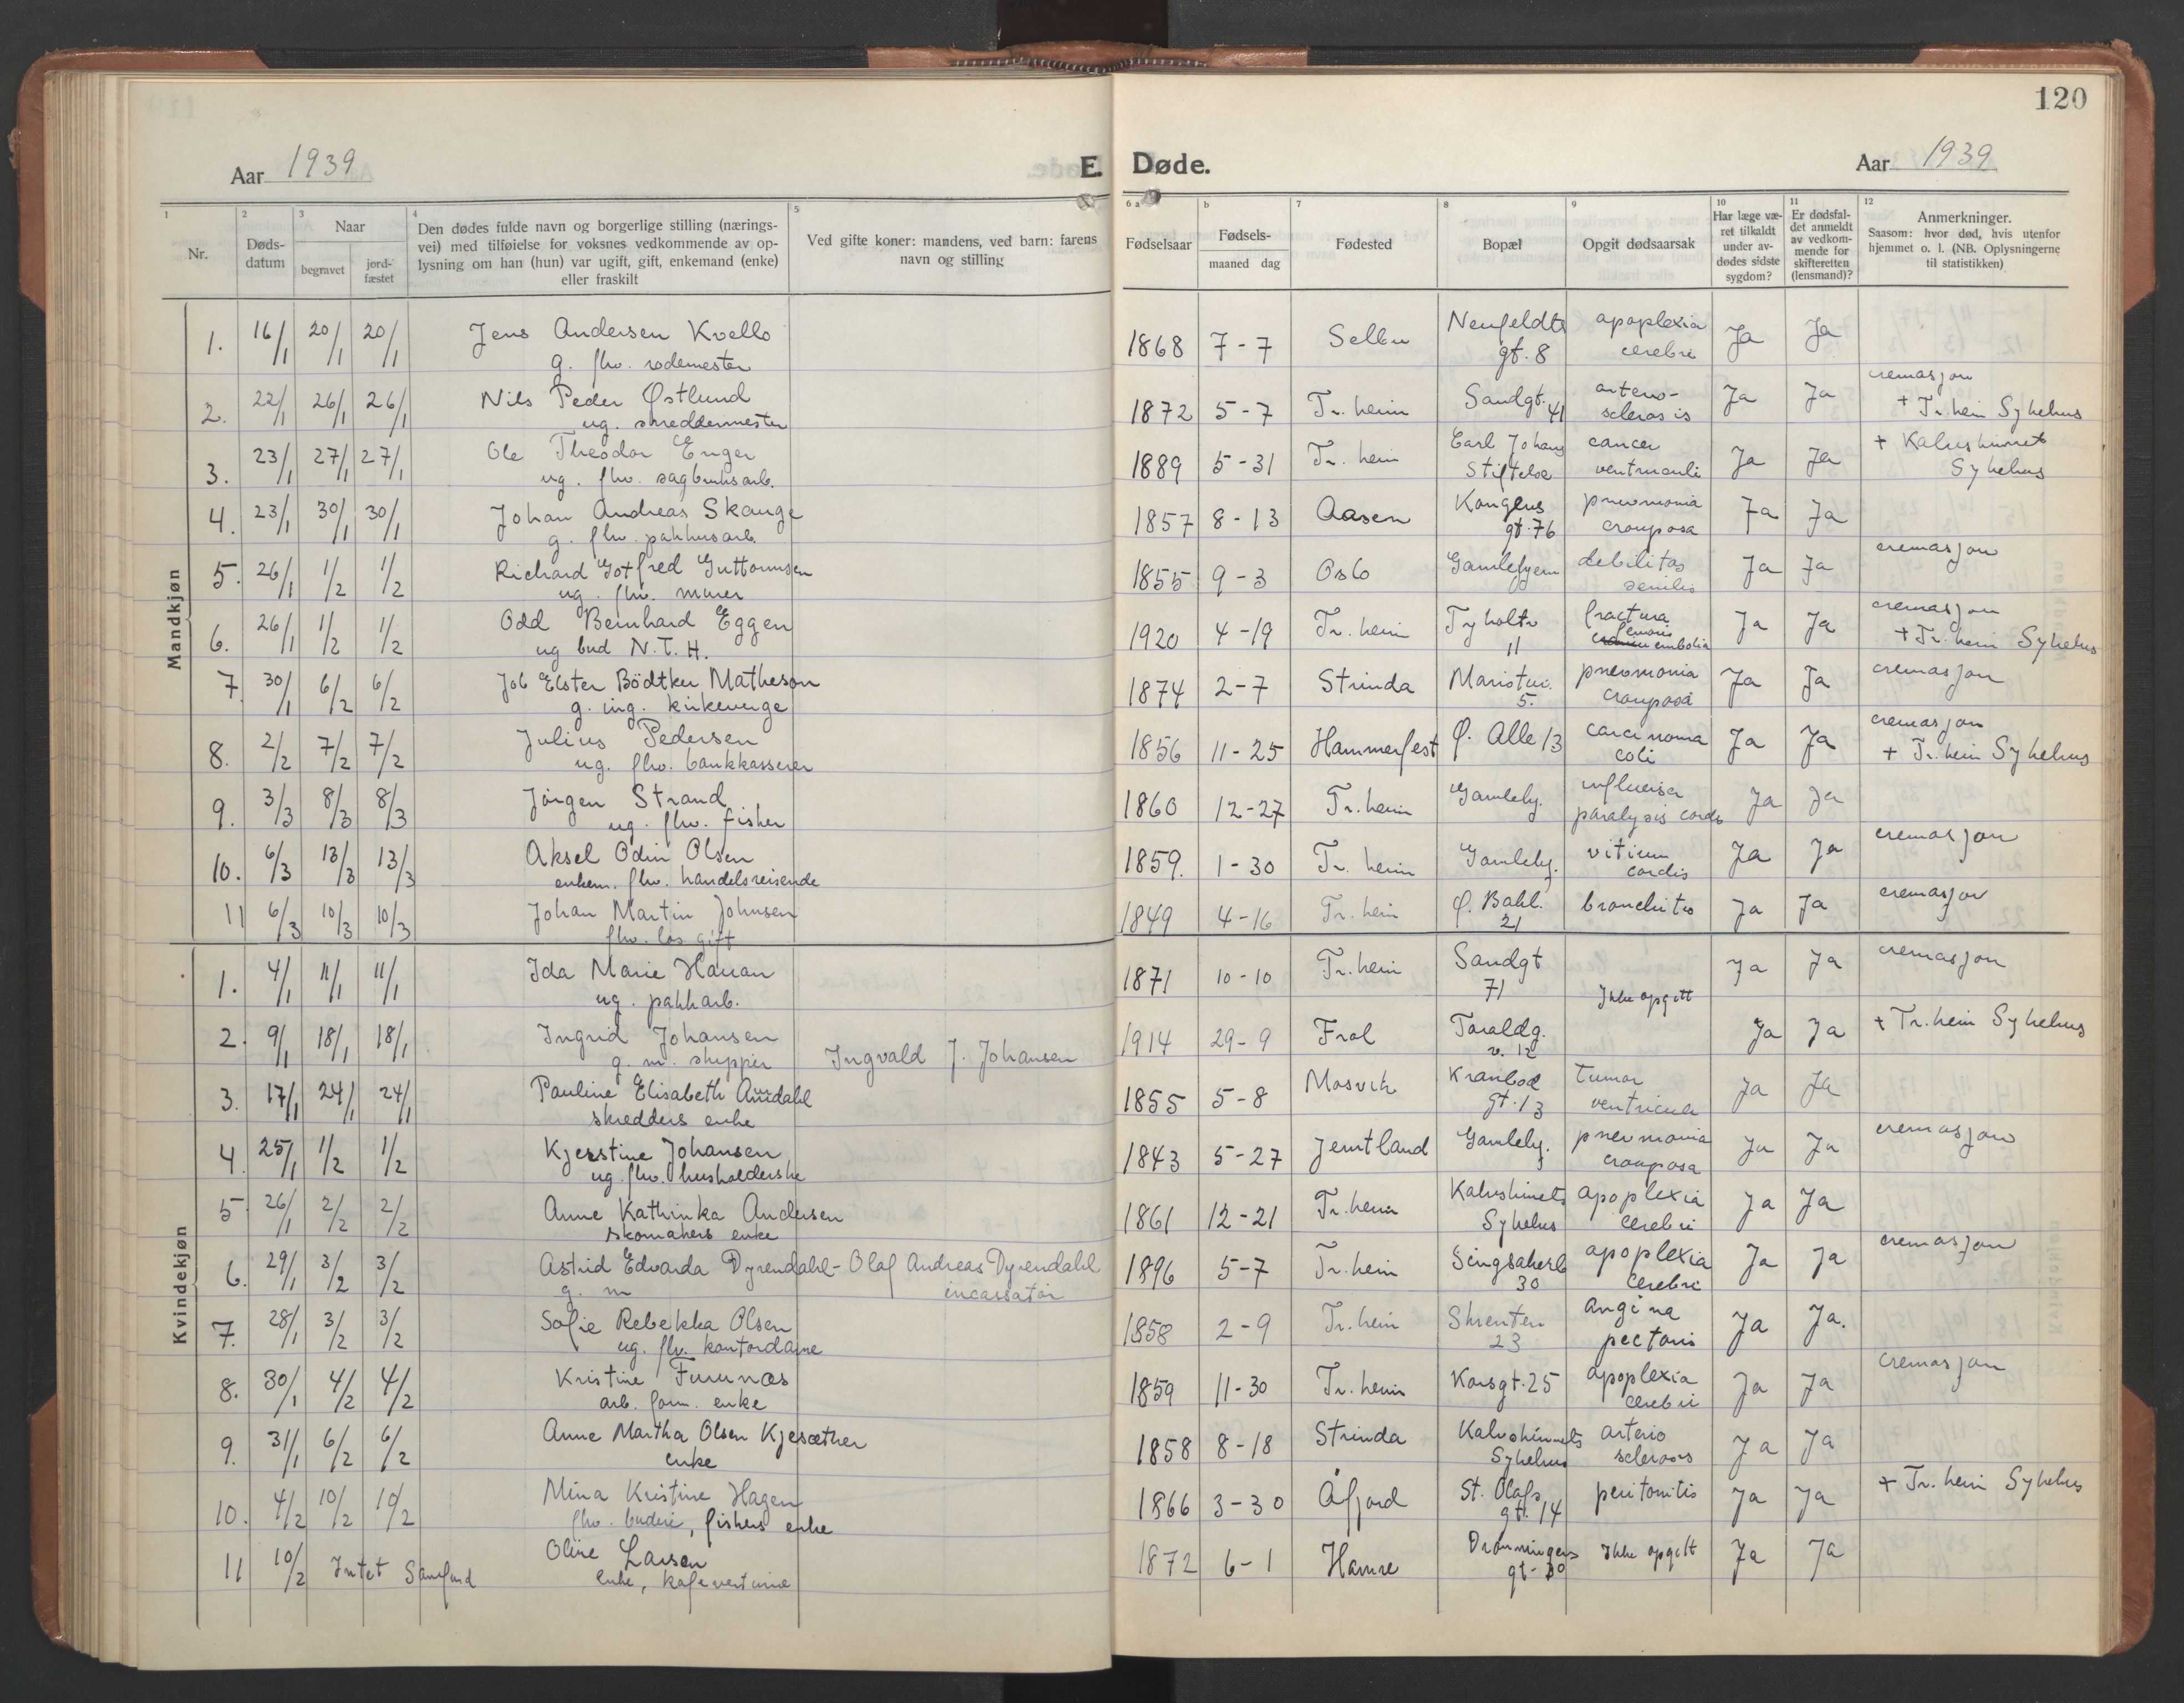 120
Aar 1939
E. Døde.
Aar 1939
1
Nr.
2
Døds-
datum
3
Naar
begravet
jord-
fæstet
4
Den dødes fulde navn og borgerlige stilling (nærings-
vei) med tilføielse for voksnes vedkommende av op-
lysning om han (hun) var ugift, gift, enkemand (enke)
eller fraskilt
5
Ved gifte koner: mandens, ved barn: farens
navn og stilling
6 a
Fødselsaar
b
Fødsels-
maaned dag
7
Fødested
8
Bopæl
9
Opgit dødsaarsak
10
Har læge væ-
ret tilkaldt
under av-
dødes sidste
sygdom?
11
Er dødsfal-
det anmeldt
av vedkom-
mende for
skifteretten
(lensmand)?
12
Anmerkninger.
Saasom: hvor død, hvis utenfor
hjemmet o. l. (NB. Oplysningerne
til statistikken)
Mandkjøn
1. 16/1 20/1 20/1 Jens Andersen Kvello 1868 7-7 Selbu Neufeldts apoplexia Ja Ja
g. fhv. rodemester gt. 8 cerebri
2. 22/1 26/1 26/1 Nils Peder Østlund 1872 5-7 Tr.heim Sandgt. 41 arterio- Ja Ja cremasjon
ug. skreddermester sclerosis + Tr.heim Sykehus
3. 23/1 27/1 27/1 Ole Theodor Enger 1889 5-31 Tr.heim Carl Johans cancer Ja Ja + Kalvskinnet
ug. fhv. sagbruksarb. Stiftelse ventriculi Sykehus
4. 23/1 30/1 30/1 Johan Andreas Skauge 1857 8-13 Aasen Kongens pneumonia Ja Ja
g. fhv. pakhusarb. gt. 76 crouposa
5. 26/1 1/2 1/2 Richard Gotfred Guttormsen 1855 9-3 Oslo Gamlehjem debilitas Ja Ja cremasjon
ug. fhv. murer senilis
6. 26/1 1/2 1/2 Odd Bernhard Eggen 1920 4-19 Tr.heim Tyholtv fractura Ja Ja cremasjon
ug bud N.T.H. 11 femoris embolia + Tr.heim Sykehus
7 30/1 6/2 6/2 Job Elster Bödtker Matheson 1874 2-7 Strinda Maristuv. pneumonia Ja Ja cremasjon
g. ing. kirkeverge 5. crouposa
8. 2/2 7/2 7/2 Julius Pedersen 1856 11-25 Hammerfest Ø. Alle 13 carcinoma Ja Ja cremasjon
ug. fhv. bankkasserer coli + Tr.heim Sykehus
9. 3/3 8/3 8/3 Jörgen Strand 1860 12-27 Tr.heim Gamlehj. influensa Ja Ja
ug. fhv. fisker paralysis cordis
10. 6/3 13/3 13/3 Aksel Odin Olsen 1859. 1-30 Tr.heim Gamlehj. vitium Ja Ja cremasjon
enkem. fhv. handelsreisende cordis
11 6/3 10/3 10/3 Johan Martin Johnsen 1849 4-16 Tr.heim Ø. Bakl. bronchitis Ja Ja cremasjon
fhv. los gift 21
Kvindekjøn
1. 4/1 11/1 11/1 Ida Marie Hauan 1871 10-10 Tr.heim Sandgt Ja Ja cremasjon
ug. pakkarb. 71 Ikke opgitt
2. 9/1 18/1 18/1 Ingrid Johansen Ingvald J. Johansen 1914 29-9 Frol Taraldg. Ja Ja + Tr.heim Sykehus
g. m. skipper v. 12
3. 17/1 24/1 24/1 Pauline Elisabeth Amdahl 1855 5-8 Mosvik Kranbod tumor Ja Ja
skredders enke gt. 13 ventriculi
4. 25/1 1/2 1/2 Kjerstine Johansen 1843 5-27 Jemtland Gamlehj. pneumonia Ja Ja cremasjon
ug. fhv. husholderske crouposa
5 26/1 2/2 2/2 Anne Kathinka Andersen 1861 12-21 Tr.heim Kalvskinnets apoplexia Ja Ja
skomakers enke Sykehus cerebri
6. 29/1 3/2 3/2 Astrid Edvarda Dyrendahl- Olaf Andreas Dyrendahl 1896 5-7 Tr.heim Singsakerb apoplexia Ja Ja cremasjon
g. m incassator 30 cerebri
7. 28/1 3/2 3/2 Sofie Rebekka Olsen 1858 2-9 Tr.heim Skrenten angina Ja Ja.
ug. fhv. kontordame 23 pectoris
8. 30/1 4/2 4/2 Kristine Furunæs 1859 11-30 Tr.heim Korsgt. 25 apoplexia Ja Ja cremasjon
arb. form. enke cerebri
9. 31/1 6/2 6/2 Anne Martha Olsen Kjesæther 1858 8-18 Strinda Kalvskinnets arterio Ja Ja
enke Sykehus scleroses
10. 4/2 10/2 10/2 Mina Kristine Hagen 1866 3-30 Åfjord St. Olafs peritonitis Ja Ja + Tr.heim Sykehus
fhv. budeie, fiskers enke gt. 14
11 10/2 Intet Samfund Oline Larsen 1872 6-1 Hamre Dronningens Ikke opgitt Ja Ja
enke, kafevertinne gt-30